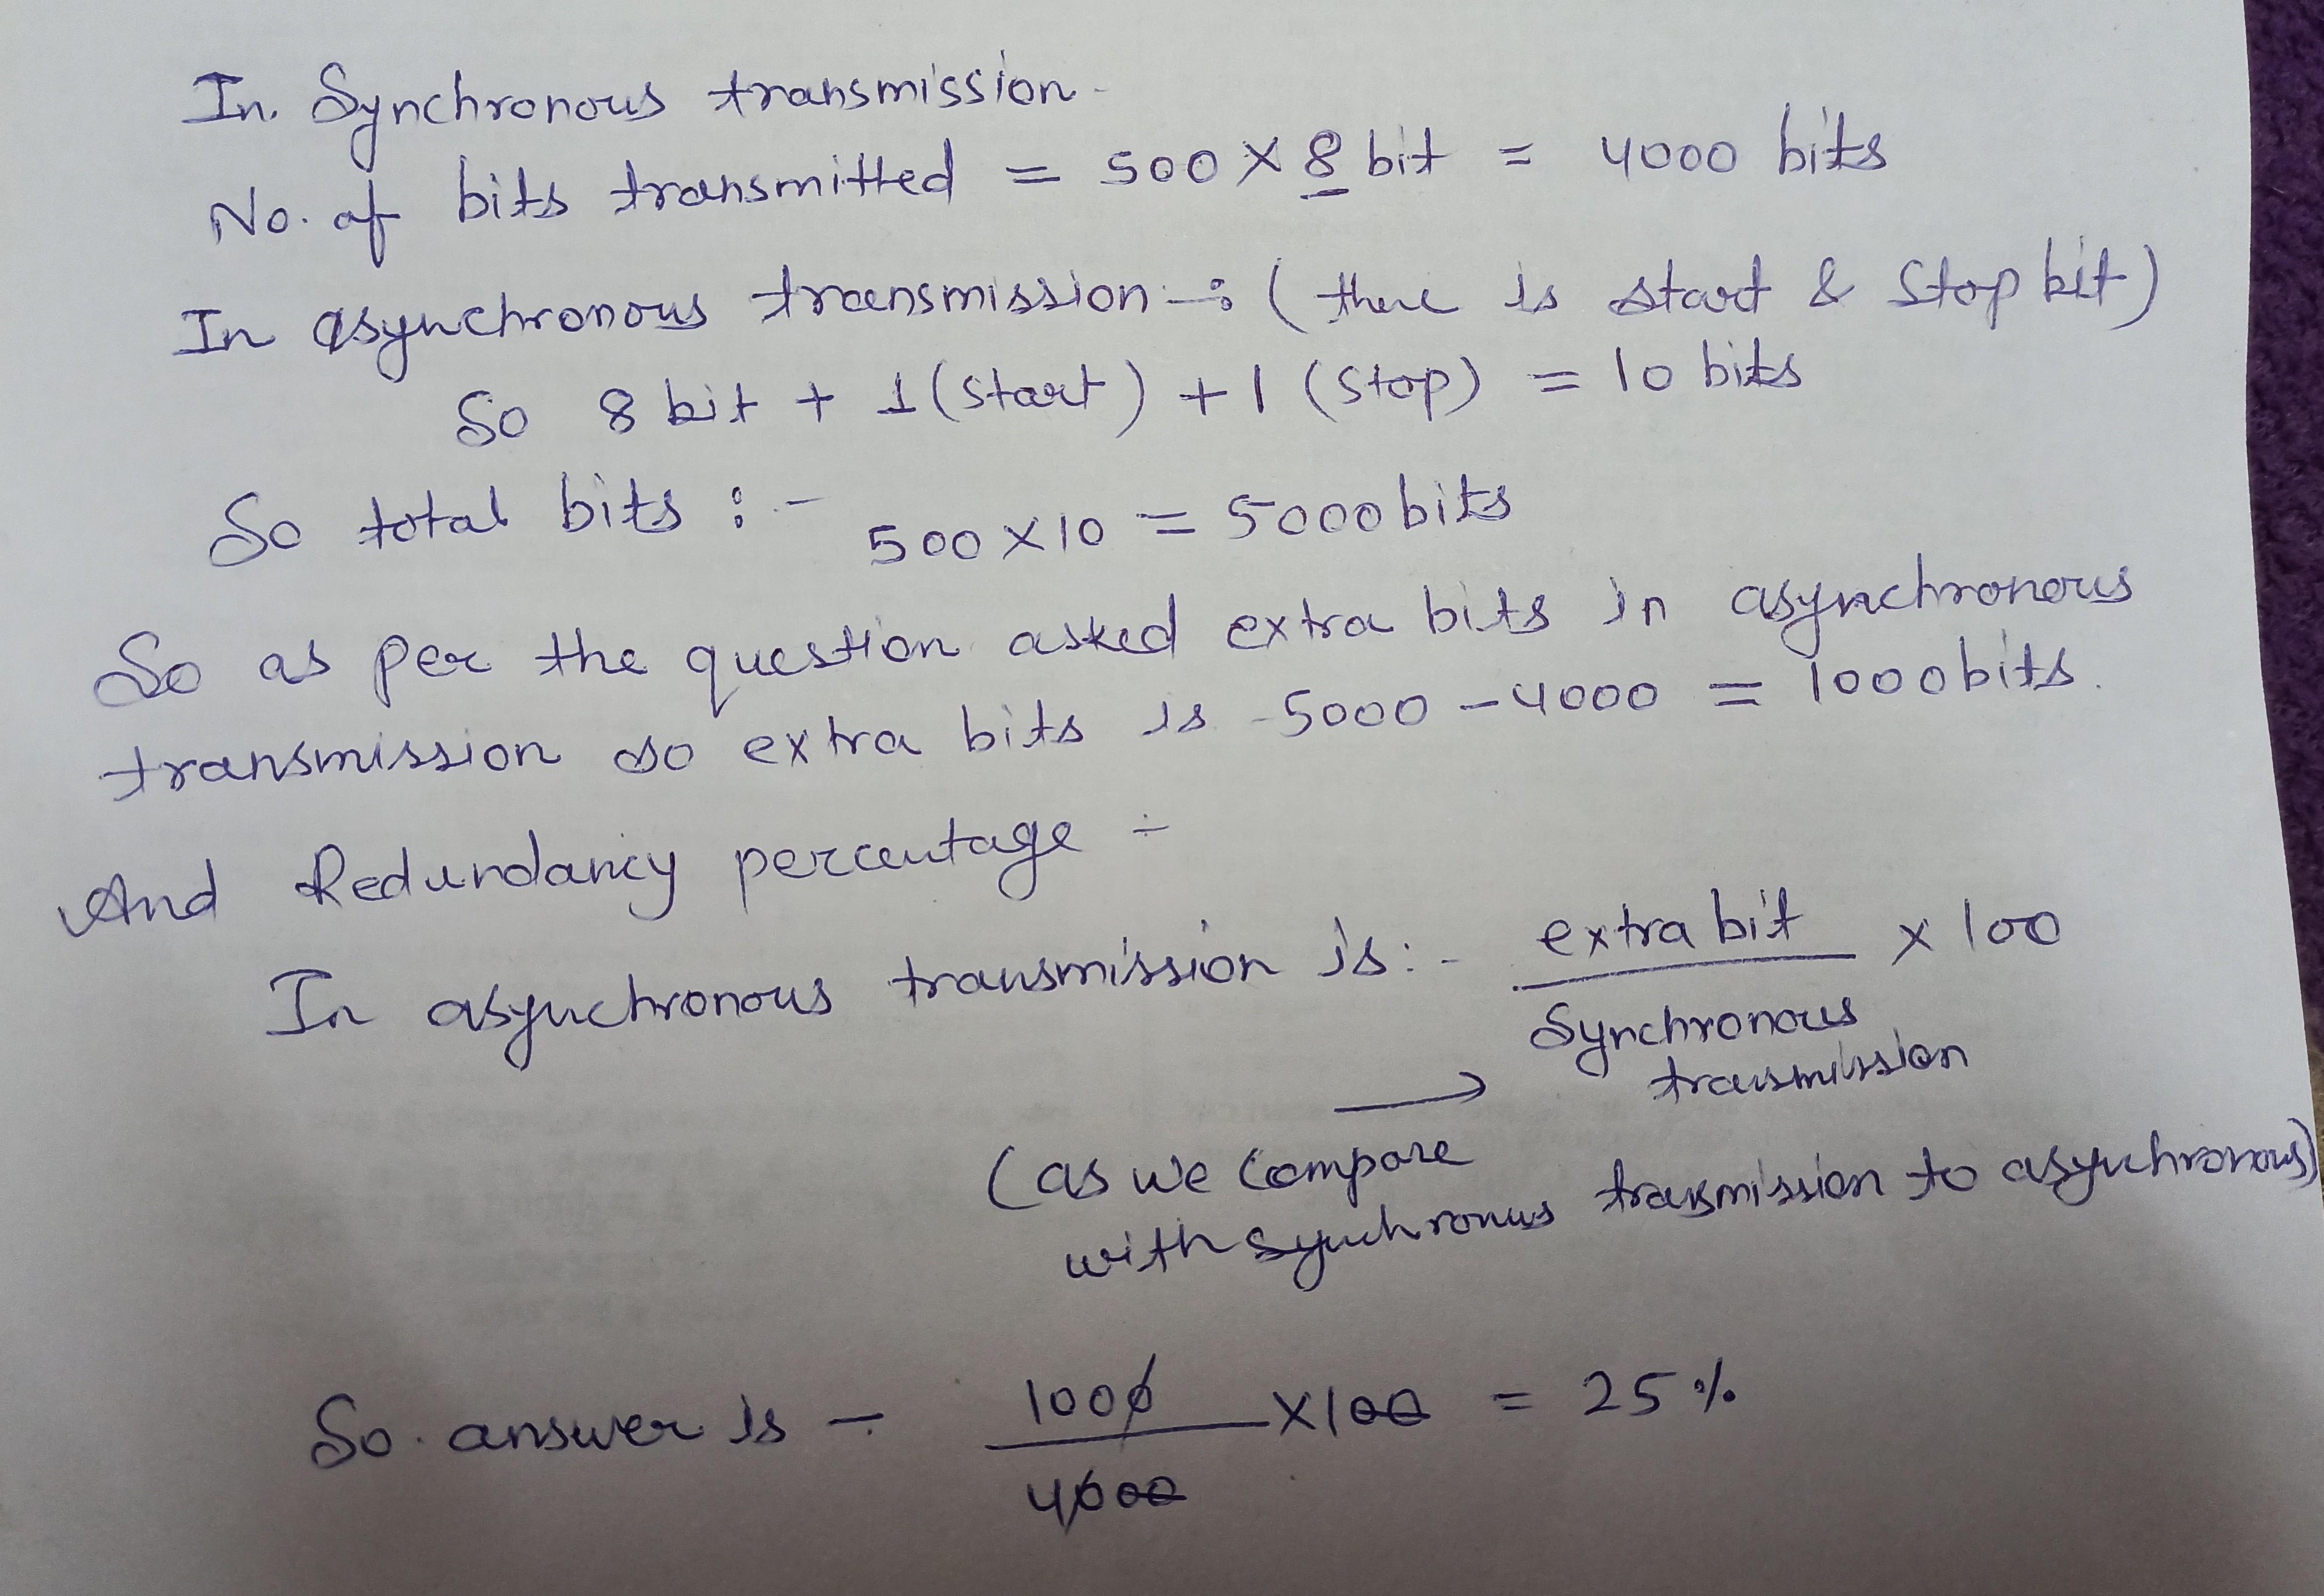 In Synchronous transmission -
No. of bits transmitted = 500 X 8 bit = 4000 bits
In asynchronous transmission :- ( there is start & stop bit )
So 8 bit + 1 (start) + 1 (stop) = 10 bits
So total bits :- 500 X 10 = 5000 bits
So as per the question asked extra bits in asynchronous
transmission so extra bits is 5000 - 4000 = 1000 bits.
And Redundancy percentage -
In asynchronous transmission is :- extra bit x 100
Synchronous
transmission
→
(as we compare
with synchronus transmission to asynchronous)
So answer is - 1000 X 100 = 25 %
4000